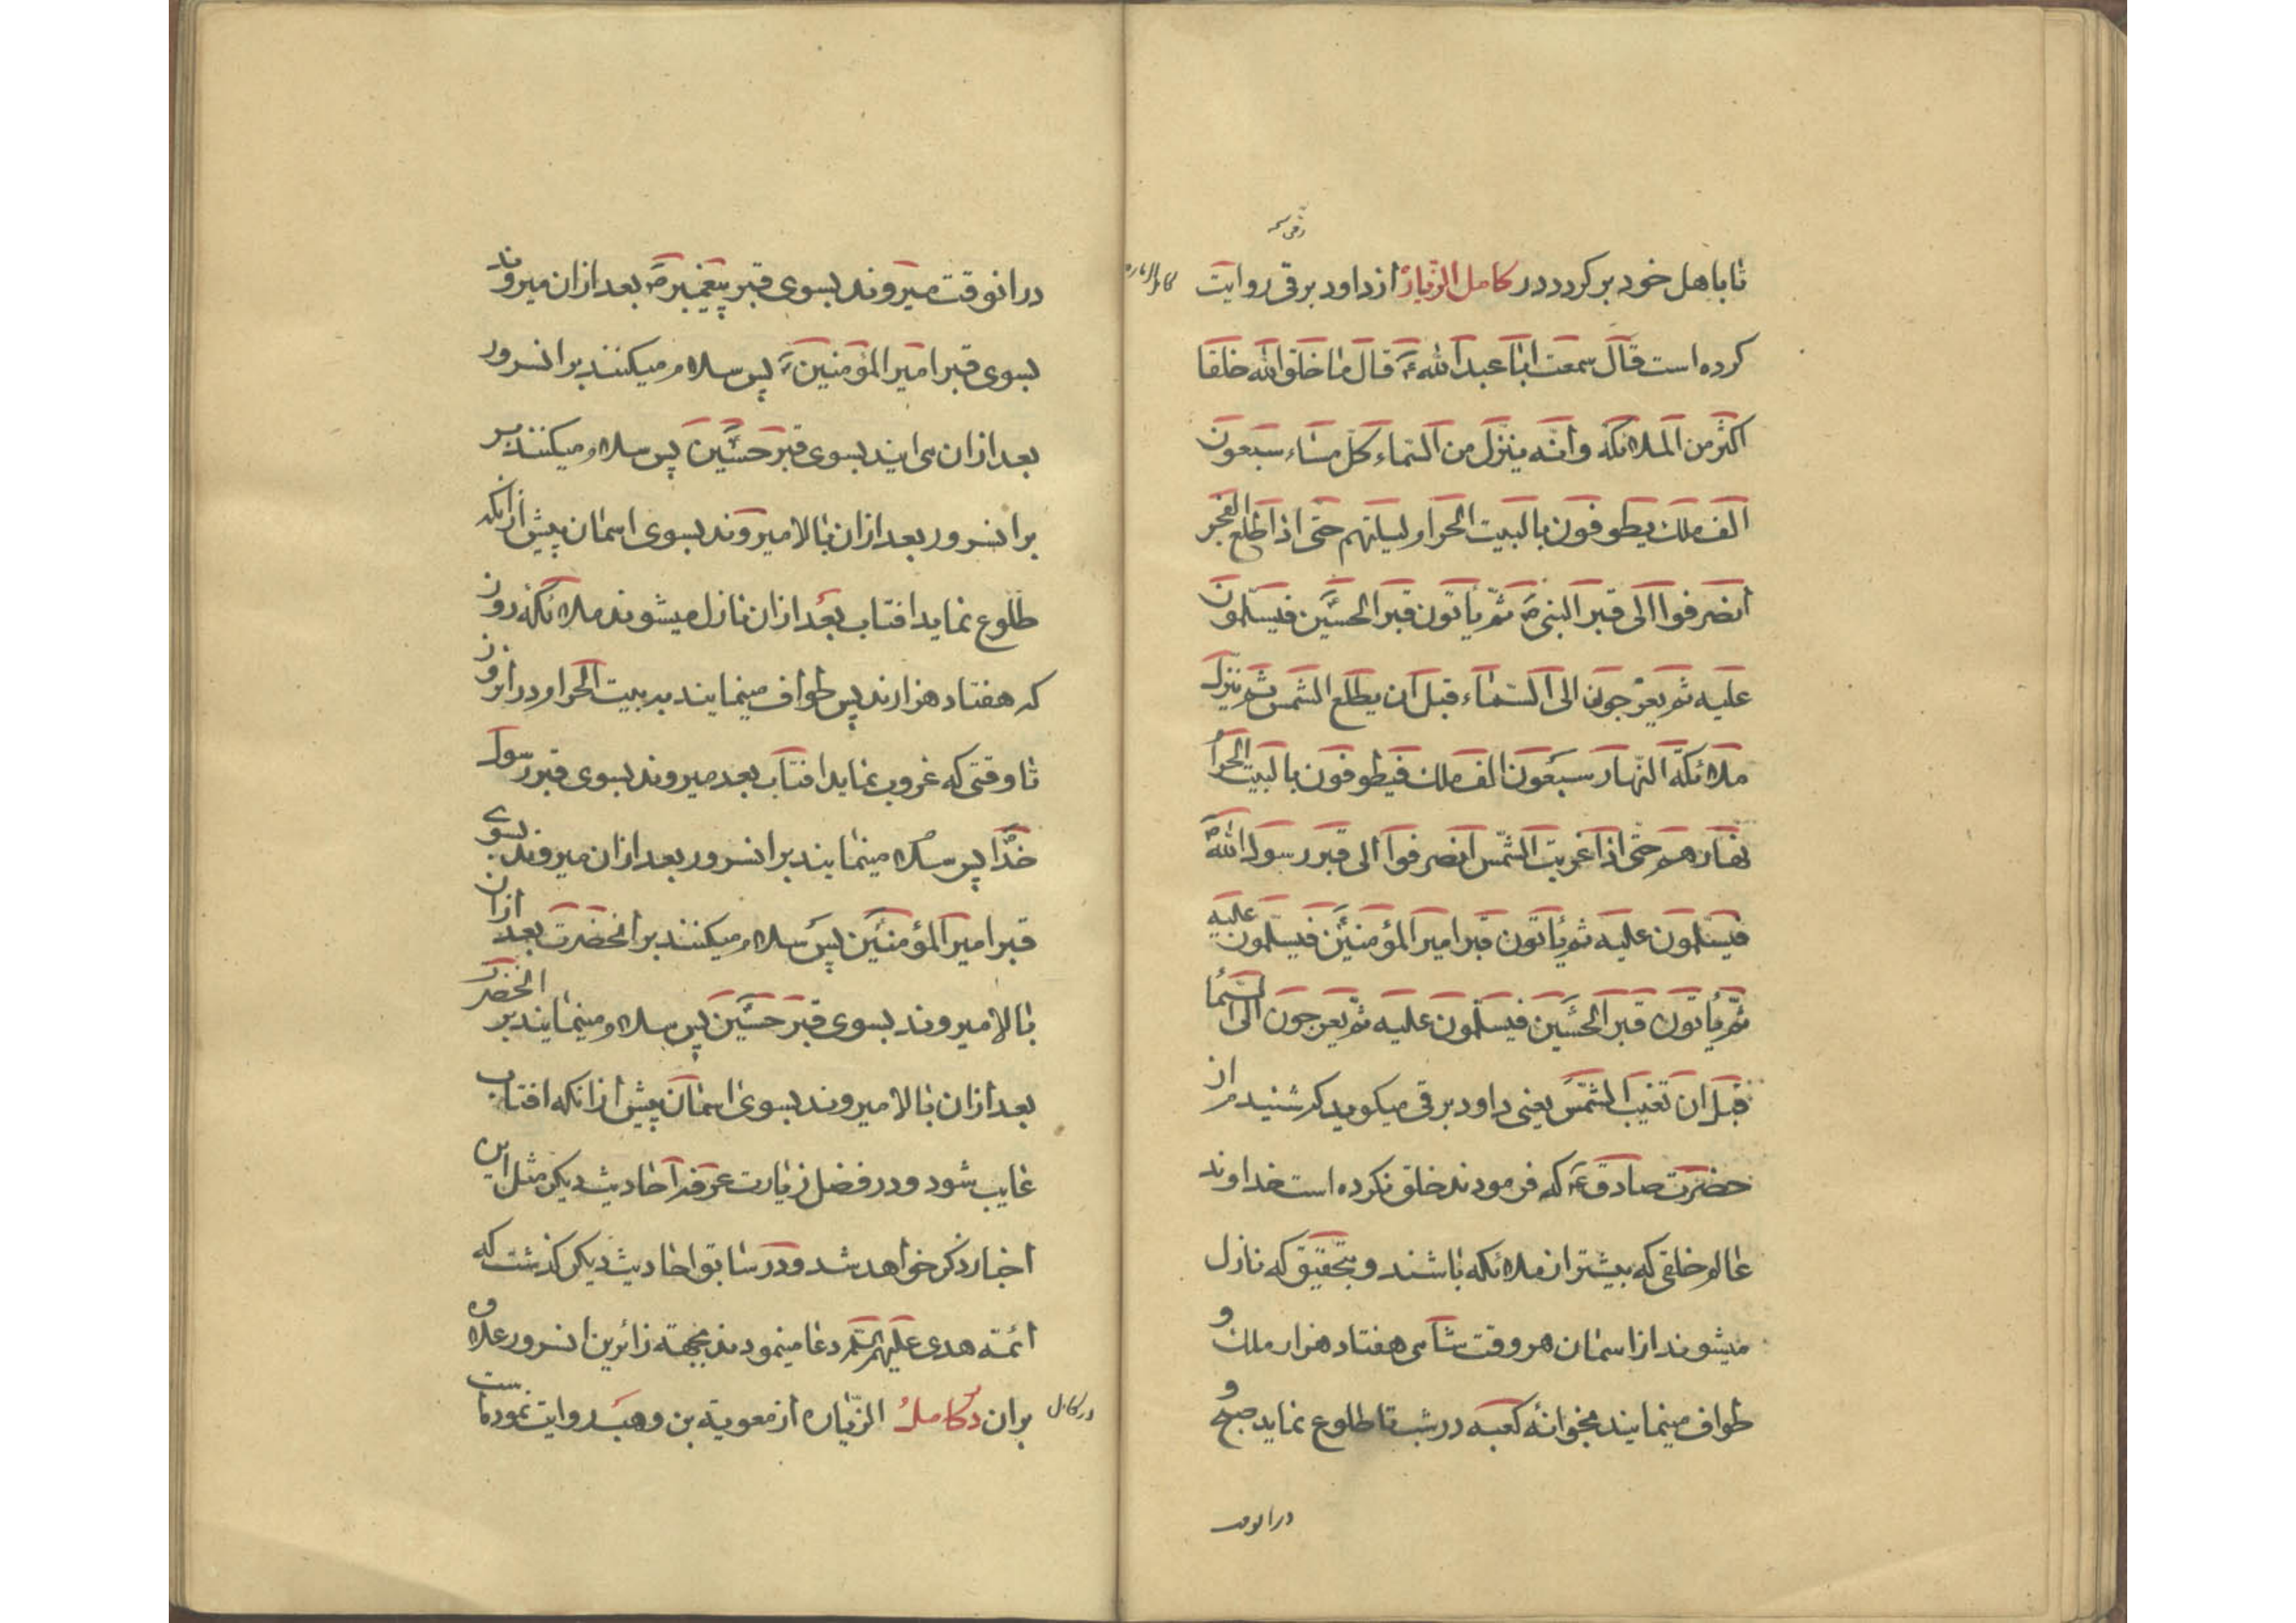 تا باهل خود برکردد در کامل الزیارة از داود برقی روایت
کرده است قال سمعت ابا عبدالله ع قال ما خلق الله خلقا
اکثر من الملائکه وانه ینزل من السماء کل مساء سبعون
الف ملک یطوفون بالبیت الحرام لیلتهم حتی اذا طلع الفجر
انصرفوا الی قبر النبی ص ثم یاتون قبر الحسین فیسلمون
علیه ثم یعرجون الی السماء قبل ان یطلع الشمس ثم ینزل
ملائکة النهار سبعون الف ملک فیطوفون بالبیت الحرام
نهارهم حتی اذا غربت الشمس انصرفوا الی قبر رسول الله ص
فیسلمون علیه ثم یاتون قبر امیر المؤمنین فیسلمون علیه
ثم یاتون قبر الحسین فیسلمون علیه ثم یعرجون الی السماء
قبل ان تغیب الشمس یعنی داود برقی میکوید که شنیدم از
حضرت صادق ع که فرمودند خلق نکرده است خداوند
عالم خلقی که بیشتر از ملائکه باشند و بتحقیق که نازل
میشوند از اسمان هر وقت شامی هفتاد هزار ملک و
طواف مینمایند بخوانه کعبه در شب تا طلوع نماید صبح و
در انوقت
در انوقت میروند بسوی قبر پیغمبر ص بعد ازان میروند
بسوی قبر امیر المؤمنین ع پس سلام میکنند بر انسرور
بعد ازان می ایند بسوی قبر حسین پس سلام میکنند بر
بر انسرور بعد ازان بالا میروند بسوی اسمان پیش ازانکه
طلوع نماید افتاب بعد ازان نازل میشوند ملائکه روز
که هفتاد هزارند پس طواف مینمایند به بیت الحرام در انروز
تا وقتی که غروب نماید افتاب بعد میروند بسوی قبر رسول
خدا پس سلام مینمایند بر انسرور بعد ازان میروند بسوی
قبر امیر المؤمنین پس سلام میکنند بر انحضرت بعد ازان
بالا میروند بسوی قبر حسین پس سلام مینمایند بر انحضرت
بعد ازان بالا میروند بسوی اسمان پیش ازانکه افتاب
غایب شود و در فضل زیارت عرفه احادیث دیکر مثل این
اخبار ذکر خواهد شد و در سابق احادیث دیکر کذشت که
ائمه هدی علیهم السلم دعا مینمودند بجهة زائرین انسرور علاوه
بران در کامل الزیاره از معویة بن وهب روایت نموده است
در کامل